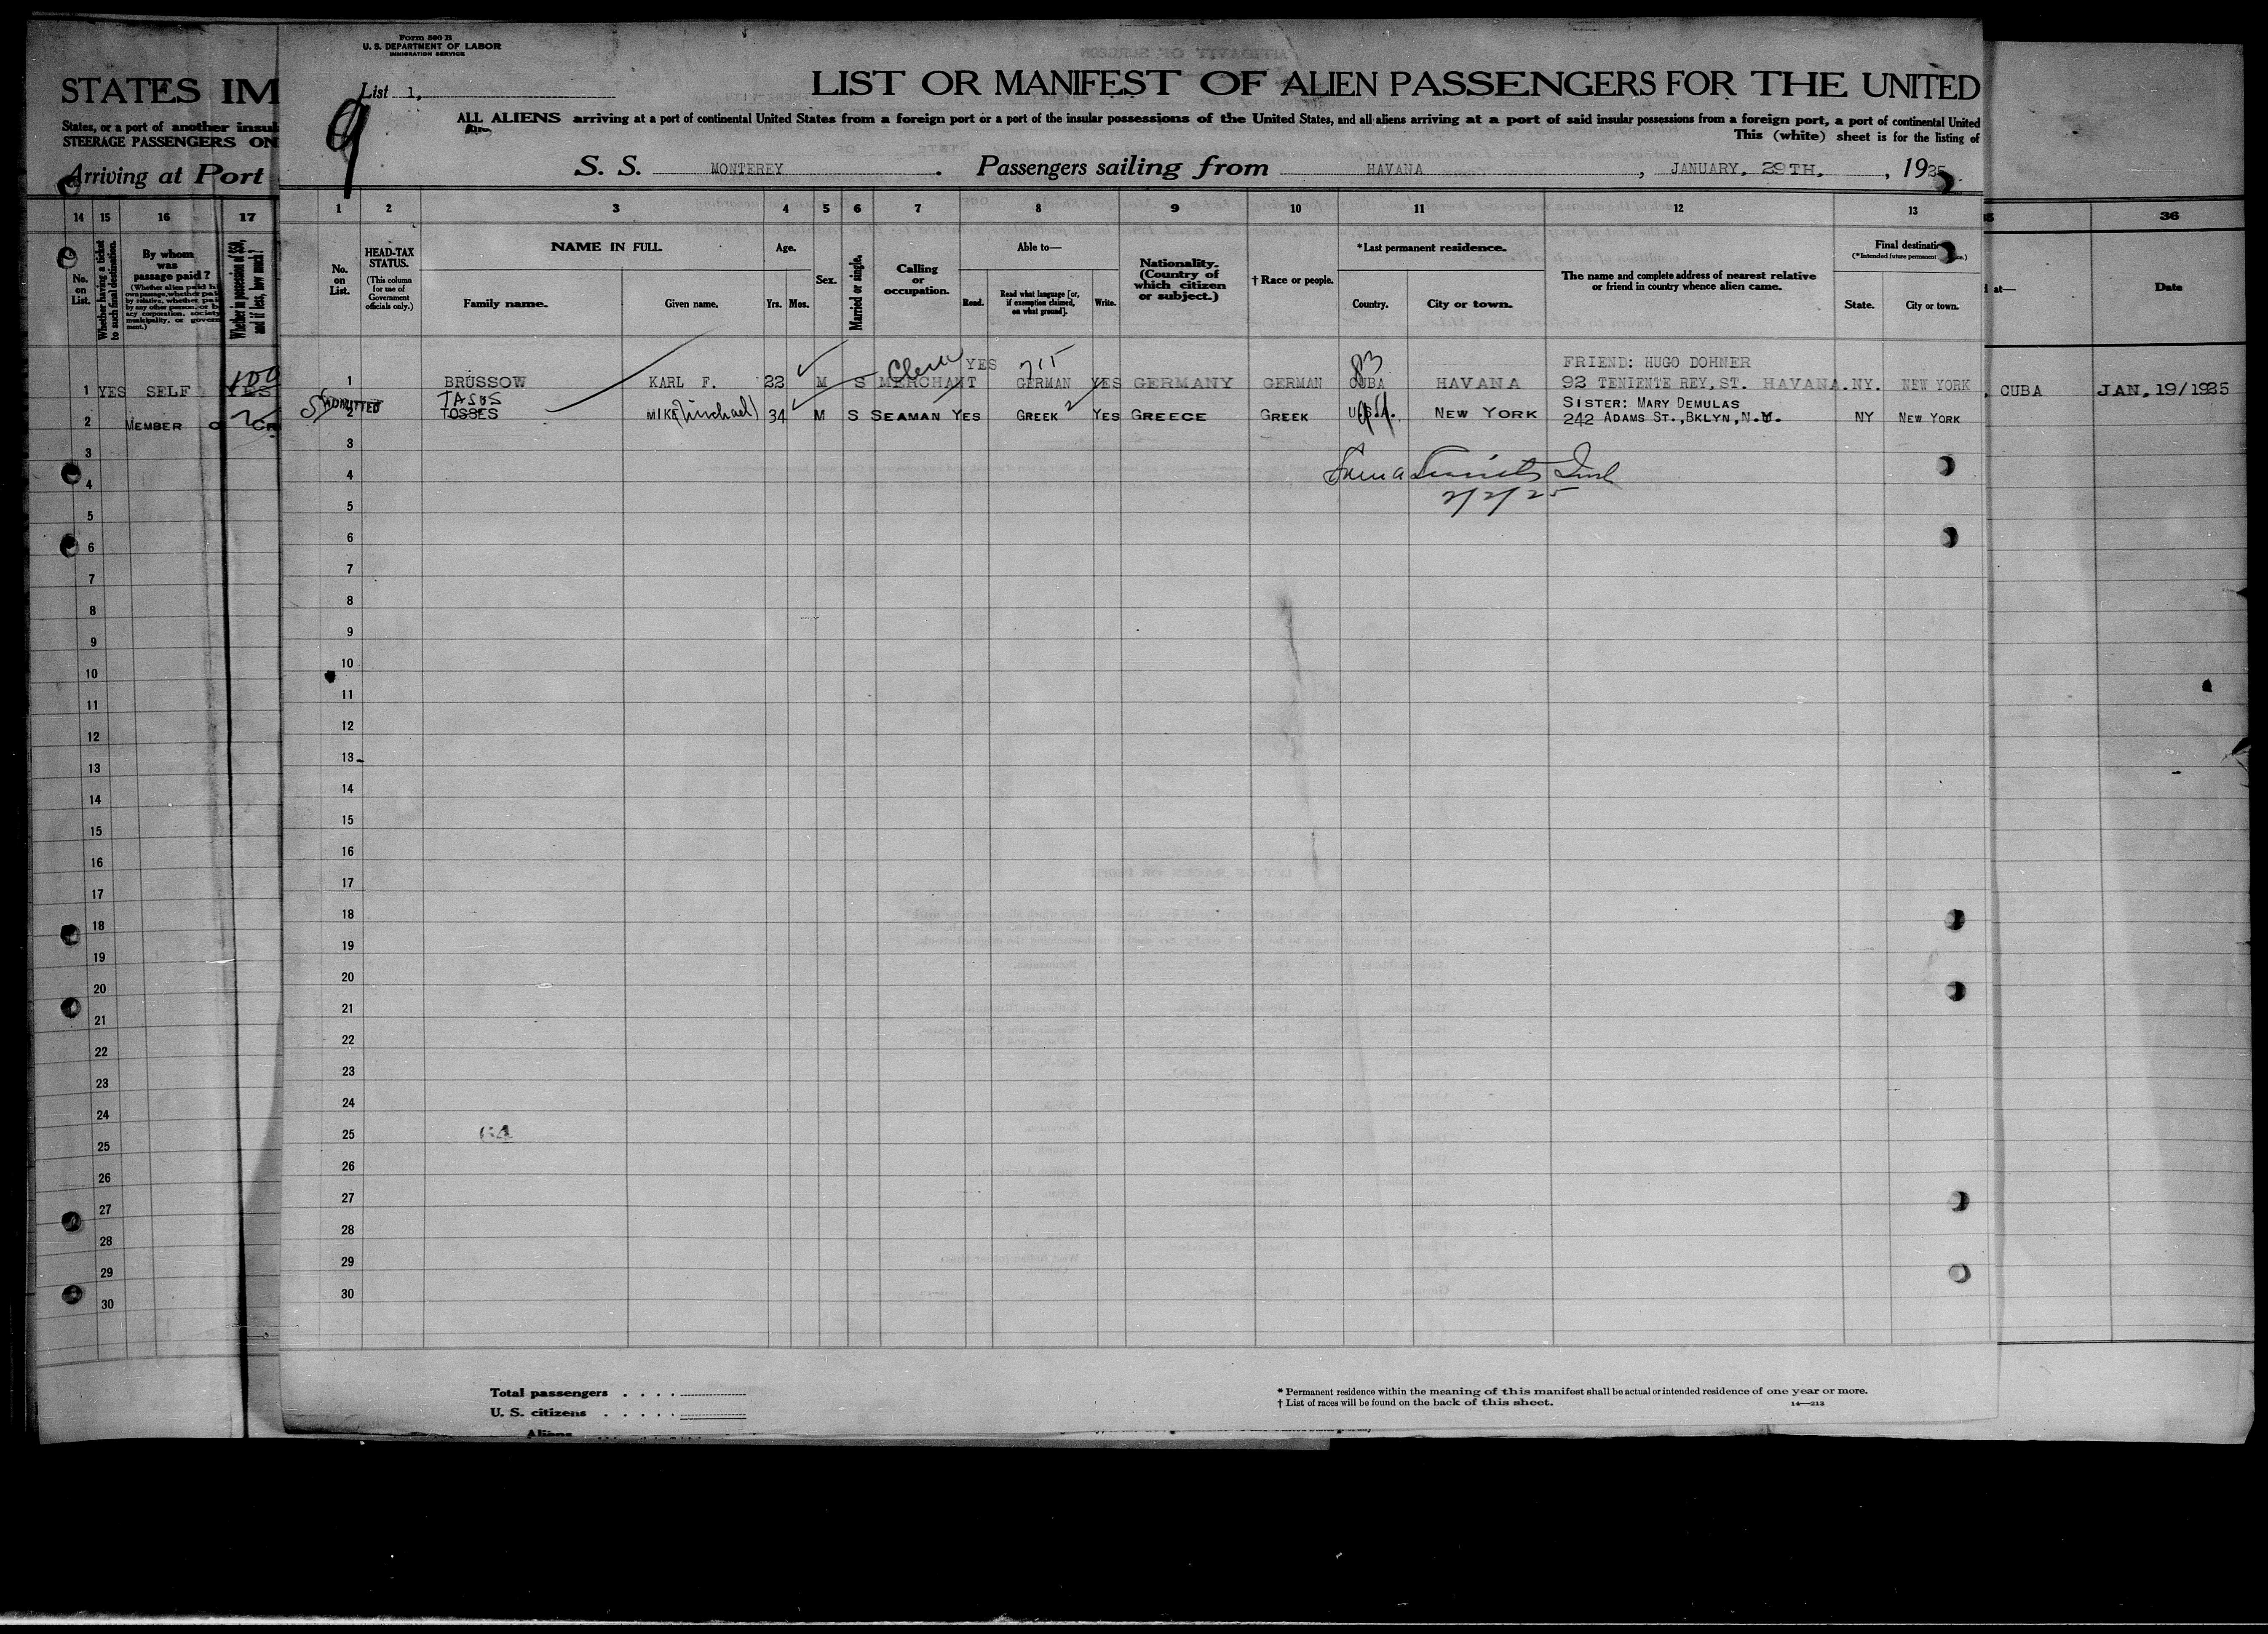 Form 500 B
U. S. DEPARTMENT OF LABOR
IMMIGRATION SERVICE
STATES IM
List 1,
LIST OR MANIFEST OF ALIEN PASSENGERS FOR THE UNITED
9
States, or a port of another insul
STEERAGE PASSENGERS ON
ALL ALIENS arriving at a port of continental United States from a foreign port or a port of the insular possessions of the United States, and all aliens arriving at a port of said insular possessions from a foreign port, a port of continental United
This (white) sheet is for the listing of
Arriving at Port
S. S. MONTEREY. Passengers sailing from HAVANA, JANUARY, 29TH, , 1925
14 15 16 17
1 2 3 4 5 6 7 8 9 10 11 12 13
36
No. on List.
Whether having a ticket to such final destination.
By whom was passage paid?
Whether in possession of $50, and if less, how much?
No. on List.
HEAD-TAX STATUS.
(This column for use of Government officials only.)
NAME IN FULL
Family name.
Given name.
Age.
Yrs. Mos.
Sex.
Married or single.
Calling or occupation.
Able to—
Read.
Read what language [or, if exemption claimed, on what ground].
Write.
Nationality. (Country of which citizen or subject.)
† Race or people.
*Last permanent residence.
Country.
City or town.
The name and complete address of nearest relative or friend in country whence alien came.
Final destination
State.
City or town.
at—
Date
1 YES SELF YES 100
1 BRUSSOW KARL F. 22 M S MERCHANT Clerk YES 715 GERMAN YES GERMANY GERMAN 83 CUBA HAVANA
FRIEND: HUGO DOHNER
92 TENIENTE REY, ST. HAVANA. NY. NEW YORK
CUBA JAN, 19/1925
2 MEMBER
ADMITTED
2 TASUS
TOSSES MIKE (Michael) 34 M S SEAMAN YES GREEK YES GREECE GREEK U.S.A. NEW YORK
SISTER: MARY DEMULAS
242 ADAMS ST., BKLYN, N.Y. NY NEW YORK
2/2/25
3
4
5
6
7
8
9
10
11
12
13
14
15
16
17
18
19
20
21
22
23
24
25
26
27
28
29
30
3
4
5
6
7
8
9
10
11
12
13
14
15
16
17
18
19
20
21
22
23
24
25
26
27
28
29
30
Total passengers . . . .
U. S. citizens . . . . .
Aliens
* Permanent residence within the meaning of this manifest shall be actual or intended residence of one year or more.
† List of races will be found on the back of this sheet.
14—213